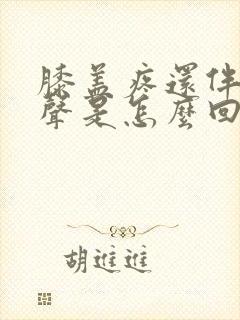 膝盖疼還伴
聲是怎麼回
胡進進